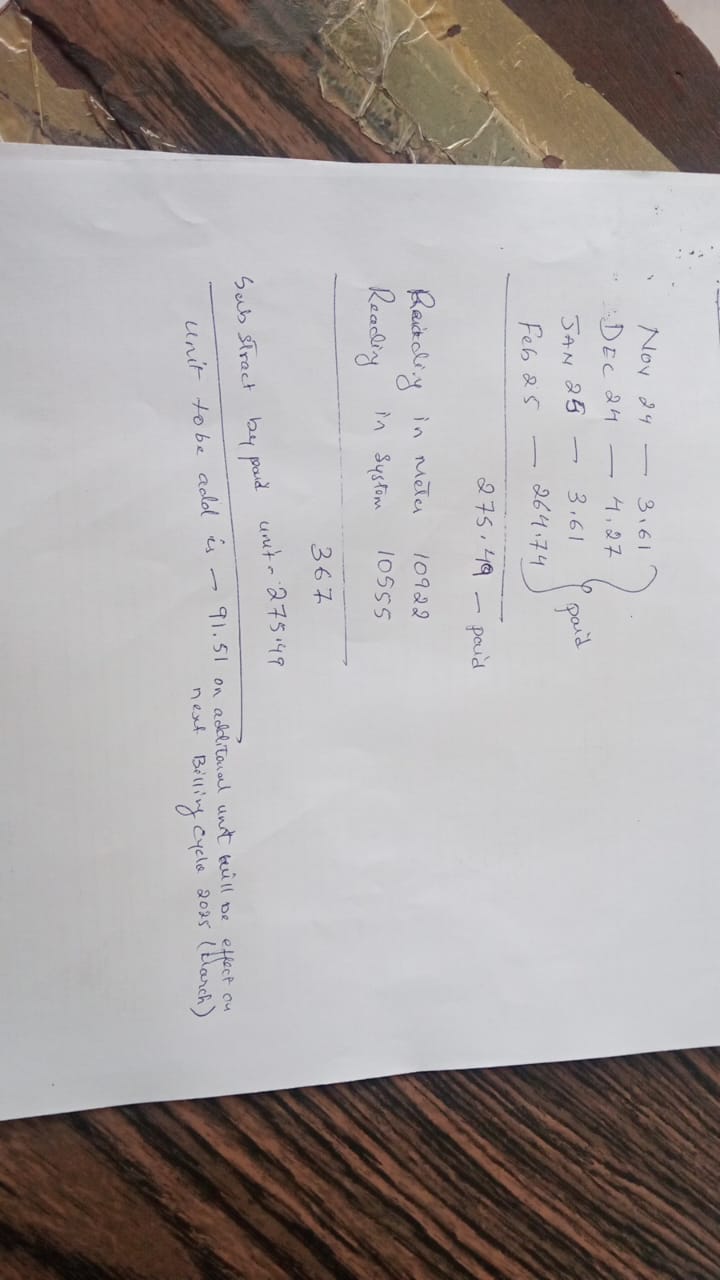 Nov 24 — 3.61
DEC 24 — 4.27
JAN 25 — 3.61 } paid
Feb 25 — 264.74
275.49 — paid
Reading in meter 10922
Reading in System 10555
367
Substract by paid unit - 275.49
Unit to be add is → 91.51 on additional unit will be effect on
next Billing cycle 2025 (March)